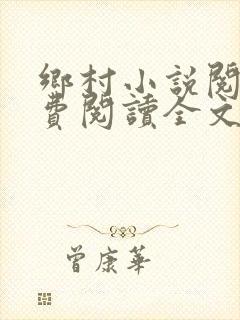 鄉村小說閱
費閱讀全文
曾康華